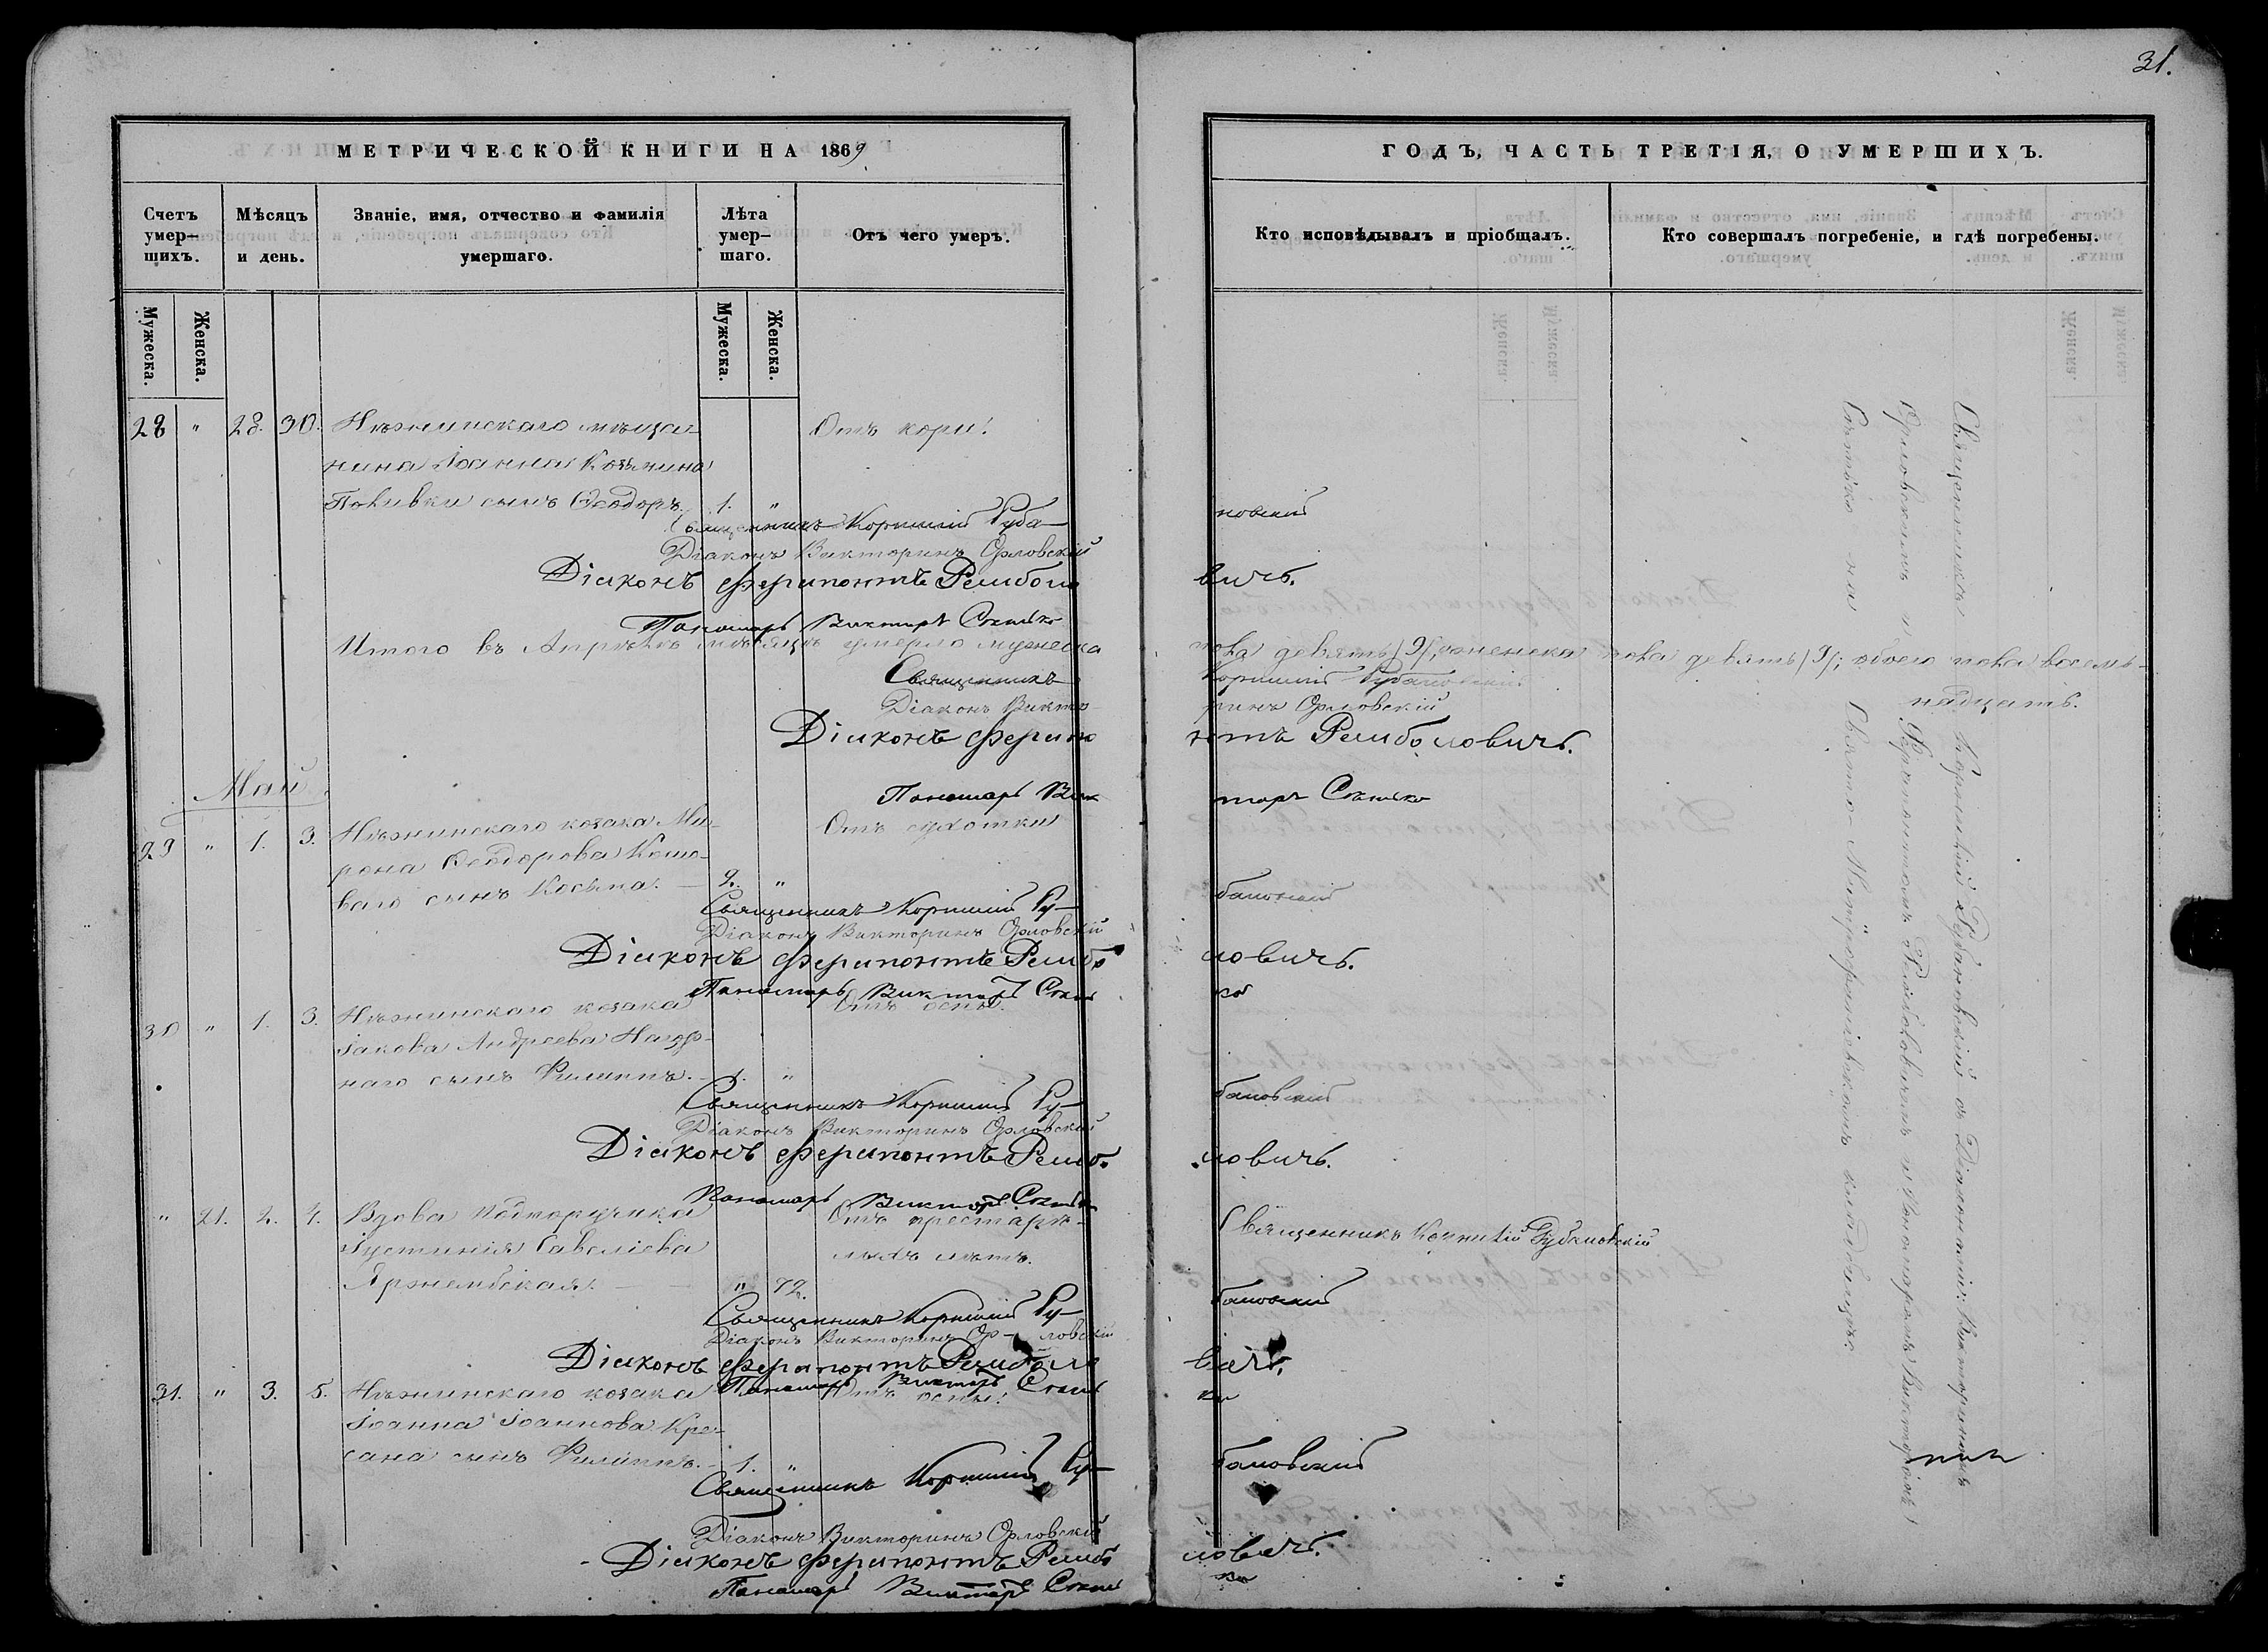 31.
МЕТРИЧЕСКОЙ КНИГИ НА 1869
ГОДЪ, ЧАСТЬ ТРЕТІЯ, О УМЕРШИХЪ.
Счетъ умер-шихъ.
Мѣсяцъ и день.
Званіе, имя, отчество и фамилія умершаго.
Лѣта умер-шаго.
Отъ чего умеръ.
Кто исповѣдывалъ и пріобщалъ.
Кто совершалъ погребеніе, и гдѣ погребены.
Мужеска. Женска. Мужеска. Женска.
28 " 28. 30. Нѣжинскаго мѣща- Отъ кори.
нина Іоанна Козмина
сынъ Ѳеодоръ. 1. "
Священникъ Корнилій Руба-новскій
Діаконъ Викторинъ Орловскій
Діаконъ Ферапонтъ Ремболовичъ.
Пономарь Викторъ
Итого въ Апрѣлѣ мѣсяцѣ умерло мужеска пола девять /9/, женска пола девять /9/; обоего пола восем-
надцать.
Священникъ Корнилій Рубановскій
Діаконъ Викторинъ Орловскій
Діаконъ Ферапонтъ Ремболовичъ.
Пономарь Викторъ
Май
29 " 1. 3. Нѣжинскаго козака Ми- Отъ сухотки
рона Ѳеодорова Кошо-
ваго сынъ Косьма. 9. "
Священникъ Корнилій Ру-бановскій
Діаконъ Викторинъ Орловскій
Діаконъ Ферапонтъ Ремболовичъ.
Пономарь Викторъ
30 " 1. 3. Нѣжинскаго козака Отъ оспы.
Іакова Андреева
сынъ Филиппъ. 1. "
Священникъ Корнилій Ру-бановскій
Діаконъ Викторинъ Орловскій
Діаконъ Ферапонтъ Ремболовичъ.
Пономарь Викторъ
" 21. 2. 4. Вдова Подпоручика Отъ престарѣ-
Іустинія Савеліева лыхъ лѣтъ.
Священникъ Корнилій Рубановскій
" 72.
Священникъ Корнилій Ру-бановскій
Діаконъ Викторинъ Ор-ловскій
Діаконъ Ферапонтъ Ремболовичъ.
Пономарь Викторъ
31. " 3. 5. Нѣжинскаго козака Отъ оспы.
Іоанна Іоаннова Кре-
сана сынъ Филиппъ. 1. "
Священникъ Корнилій Ру-бановскій
Діаконъ Викторинъ Орловскій
Діаконъ Ферапонтъ Ремболовичъ.
Пономарь Викторъ
Священникъ Корнилій Рубановскій съ Діаконами: Викториномъ
Орловскимъ и Ферапонтомъ Ремболовичемъ и Пономаремъ Викторомъ
на Свято-Митрофаніевскомъ кладбищѣ.